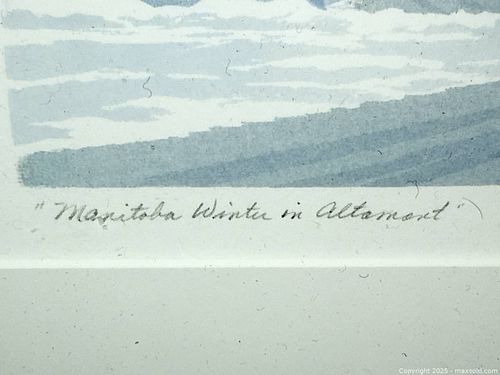 "Manitoba Winter in Altamont"
Copyright 2025 - maxsold.com